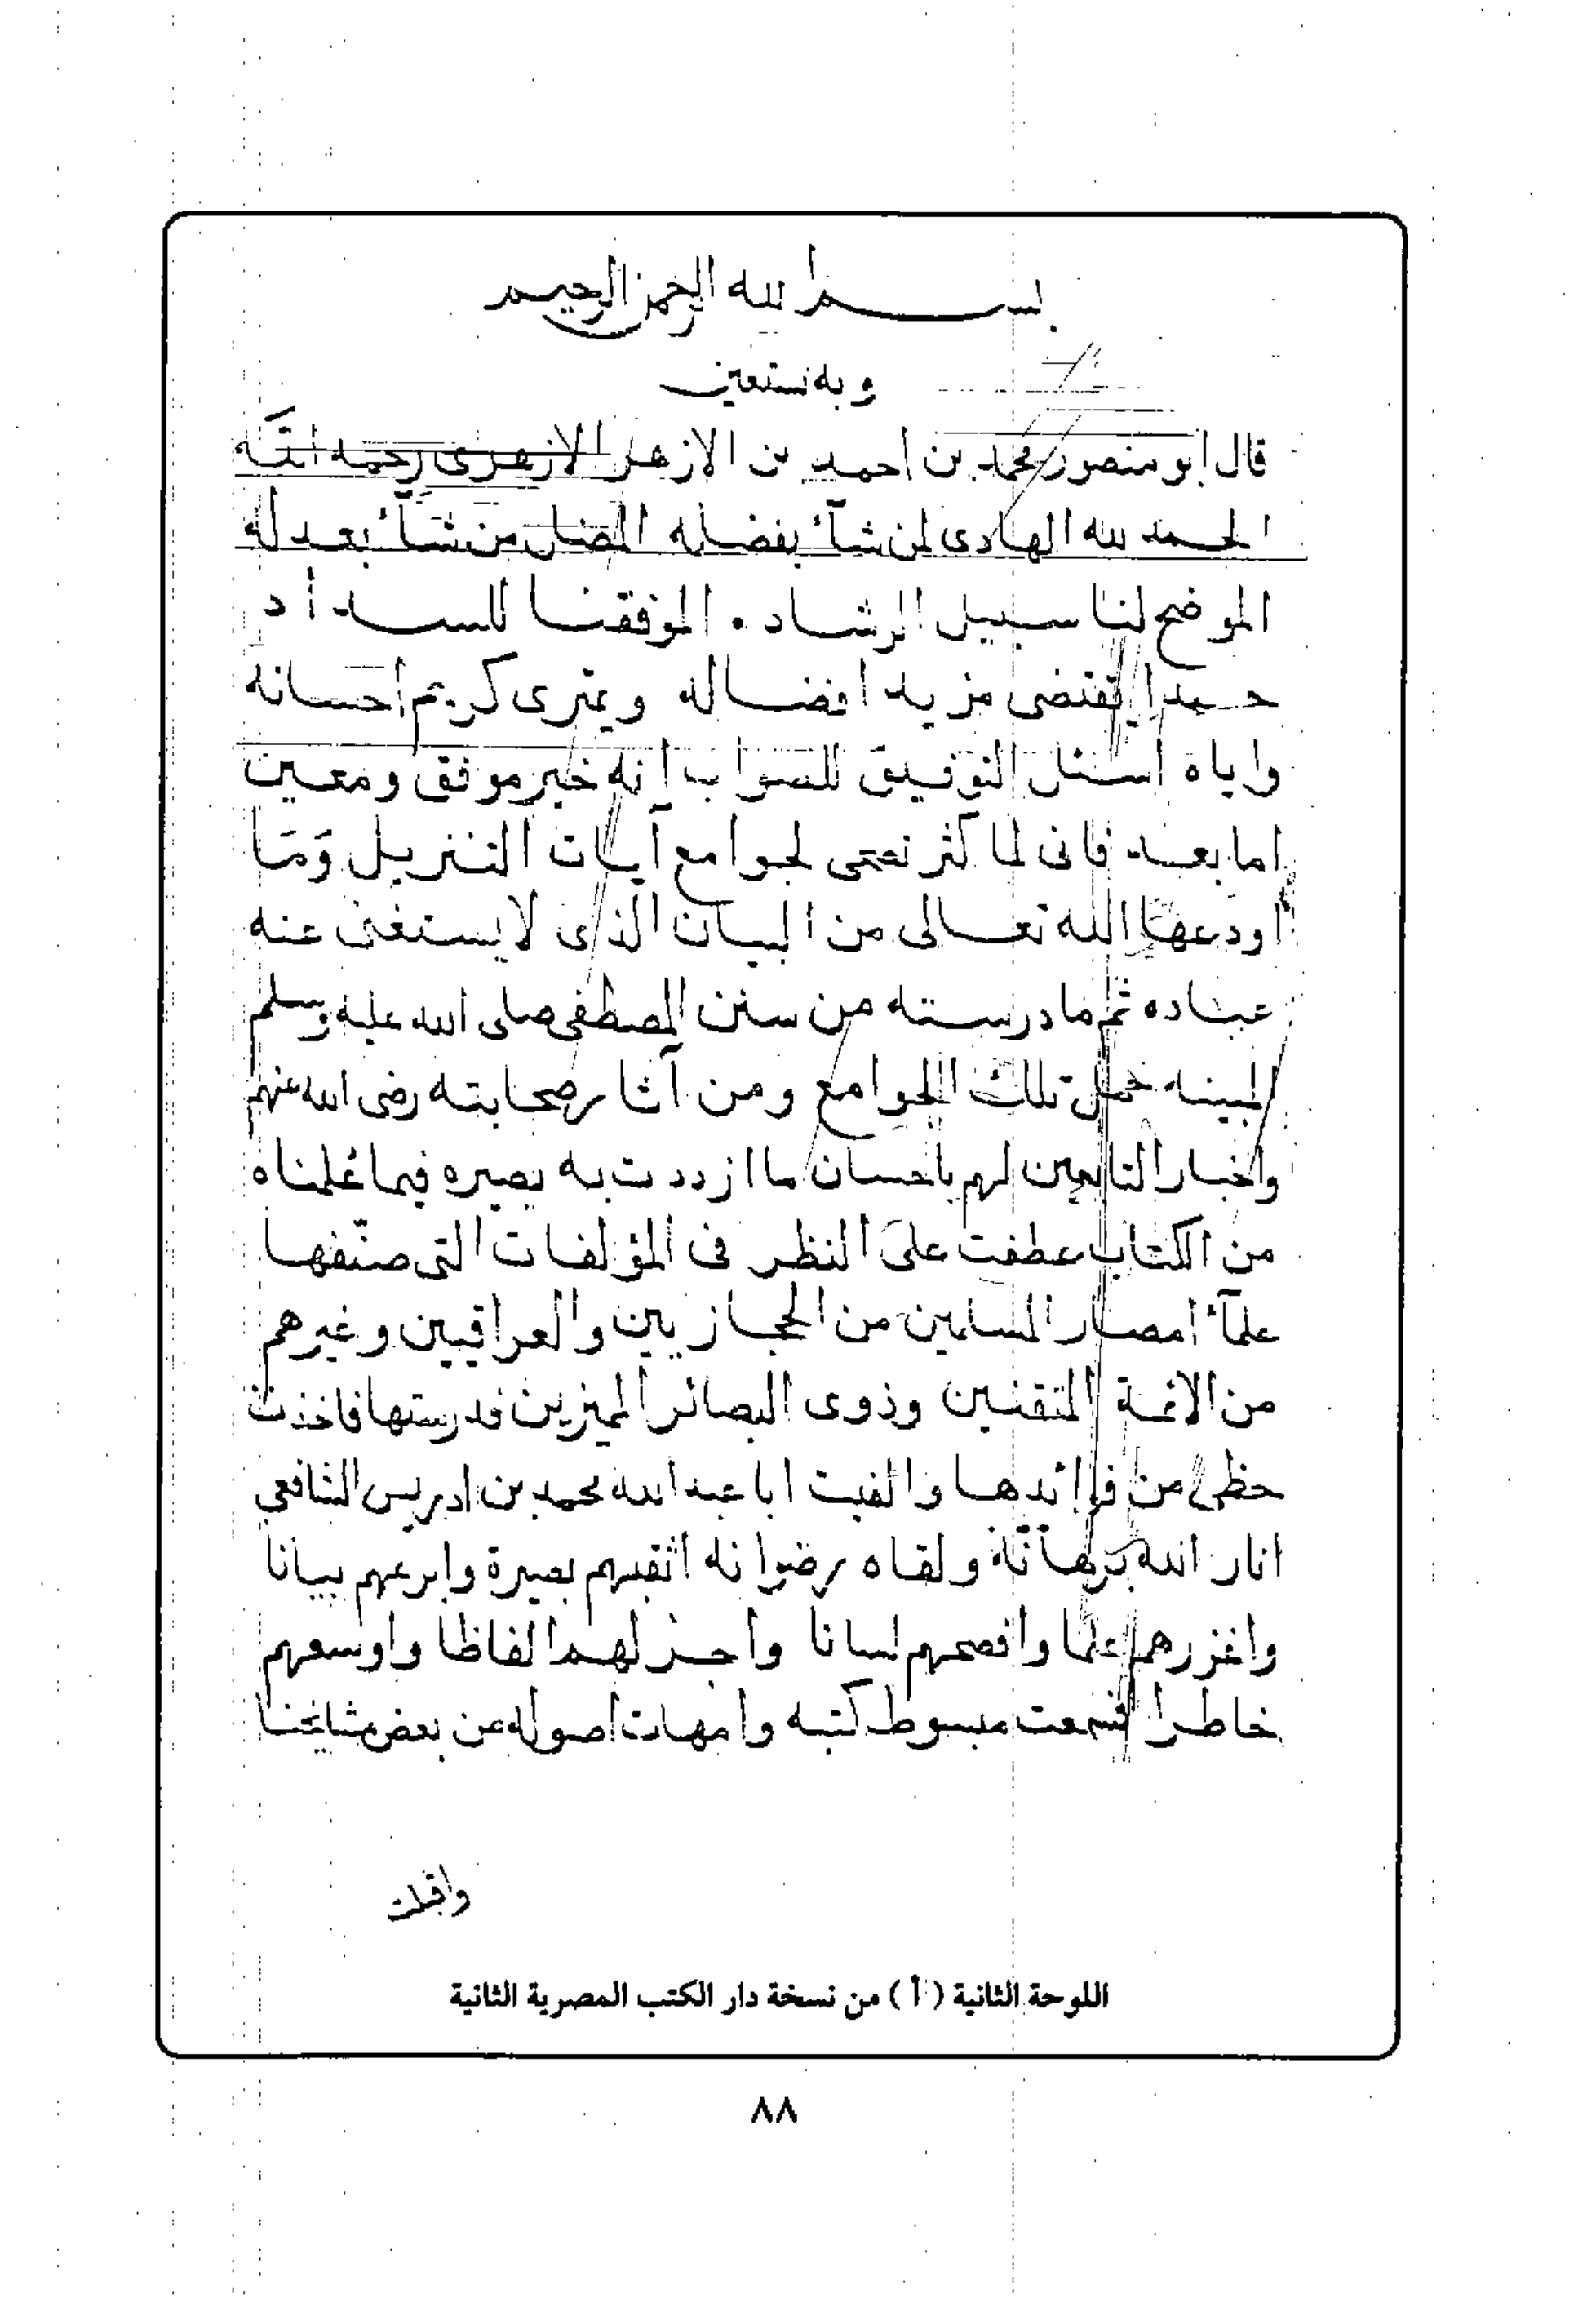 بسم الله الرحمن الرحيم
وبه نستعين
قال ابو منصور محمد بن احمد بن الازهر الازهرى رحمه الله
الحمد لله الهادى لمن شآء بفضله المضل من شآء بعدله
الموضح لنا سبيل الرشاد . الموفقنا للسداد
حمدا يقتضى مزيد افضاله ويمترى كريم احسانه
واياه اسئل التوفيق للصواب انه خير موفق ومعين
اما بعد فانى لما كثر تعبى لجوامع آيات التنزيل وَمَا
اودعها الله تعالى من البيان الذى لا يستغنى عنه
عباده ثم ما درسته من سنن المصطفى صلى الله عليه وسلم
المبينه جمل تلك الجوامع ومن آثار صحابته رضى الله عنهم
واخبار التابعين لهم باحسان ما ازددت به بصيره فيما عُلمناه
من الكتاب عطفت علىَ النظر فى المؤلفات التى صنّفها
علمآء امصار المسلمين من الحجازيين والعراقيين وغيرهم
من الائمة المتقنين وذوى البصائر المميزين فدرستها فاخذت
حظى من فوائدها والفيت ابا عبد الله محمد بن ادريس الشافعي
انار الله برهانه ولقاه رضوانه اثقبهم بصيرة وابرعهم بيانا
واغزرهم علما وافصحهم لسانا واجزلهم الفاظا واوسعهم
خاطرا فسمعت مبسوط كتبه وامهات اصوله من بعض مشايخنا
واقبلت
اللوحة الثانية (أ) من نسخة دار الكتب المصرية الثانية
٨٨